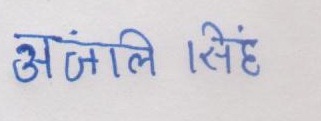 अंजलि सिंह